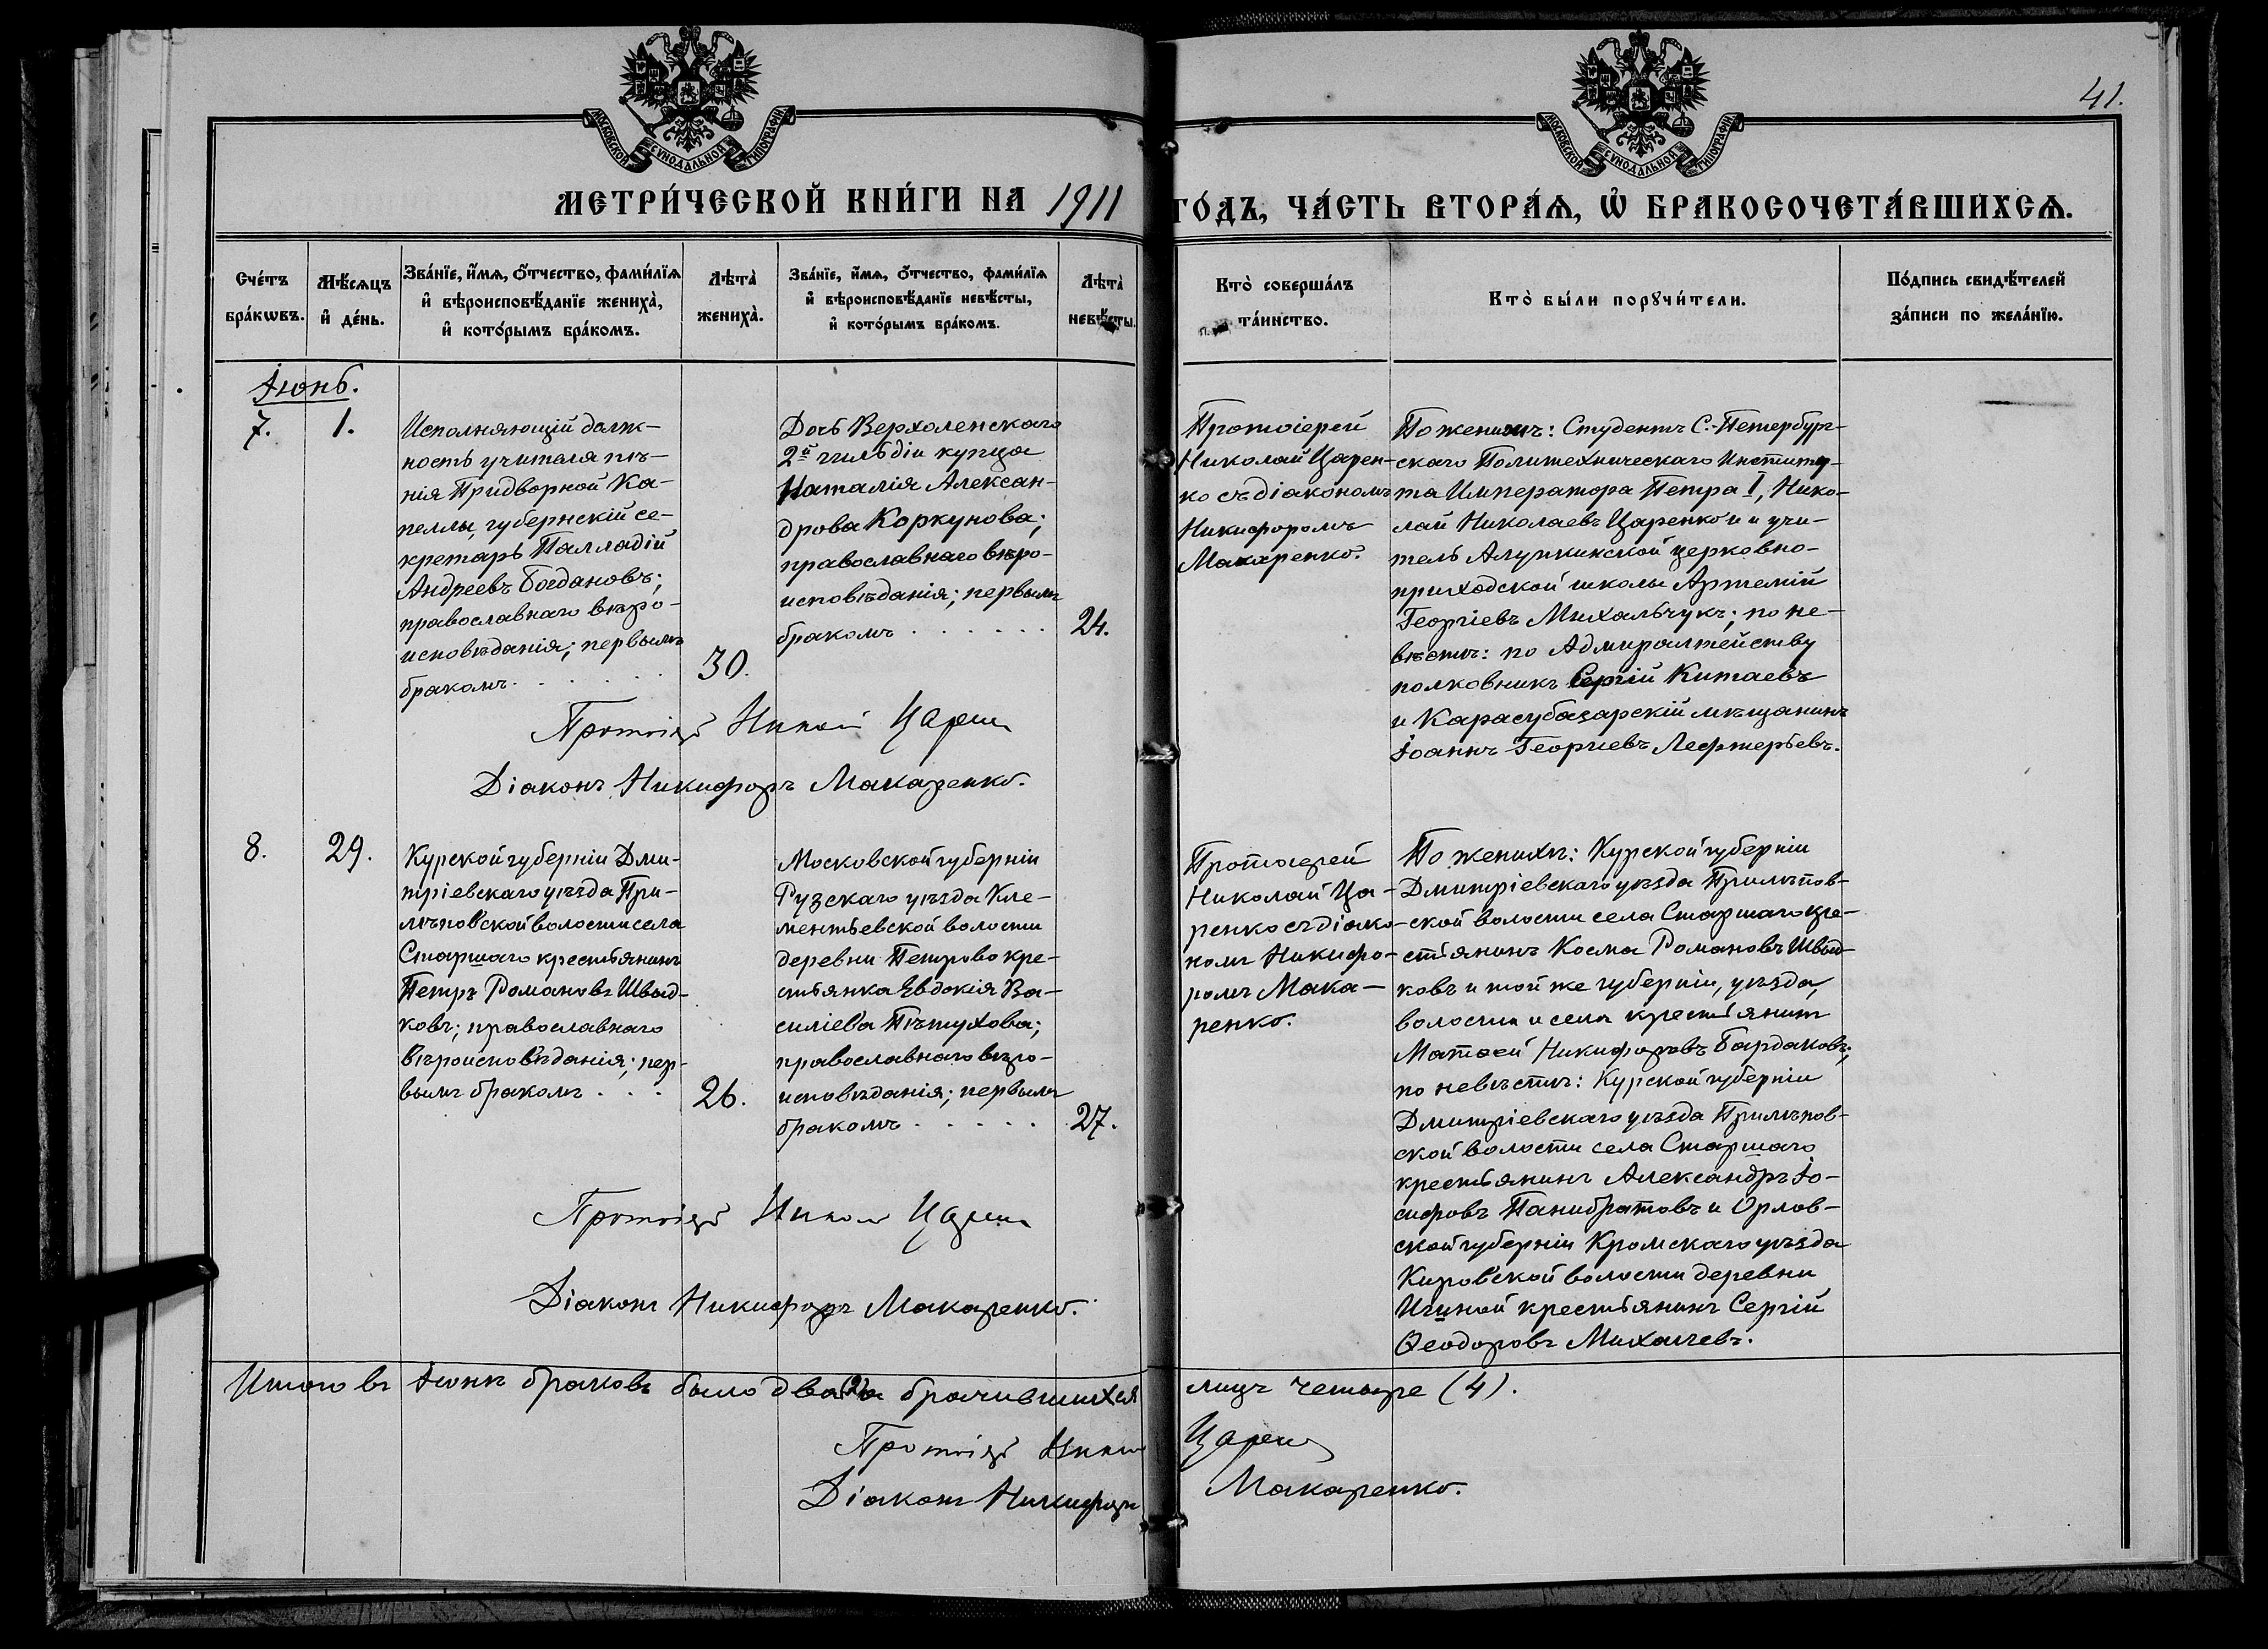 41.
МОСКОВСКОЙ СУНОДАЛЬНОЙ ТИПОГРАФІИ
МОСКОВСКОЙ СУНОДАЛЬНОЙ ТИПОГРАФІИ
МЕТРИ́ЧЕСКОЙ КНИ́ГИ НА 1911 ГО́ДЪ, ЧА́СТЬ ВТОРА́Ѧ, Ѡ҆ БРАКОСОЧЕТА́ВШИХСѦ.
Сче́тъ
бра́кѡвъ.
Мѣ́сѧцъ
и҆ де́нь.
Зва́нїе, и҆́мѧ, ѻ҆́тчество, фами́лїѧ
и҆ вѣроисповѣ́данїе жениха̀,
и҆ кото́рымъ бра́комъ.
Лѣта̀
жениха̀.
Зва́нїе, и҆́мѧ, ѻ҆́тчество, фами́лїѧ
и҆ вѣроисповѣ́данїе невѣ́сты,
и҆ кото́рымъ бра́комъ.
Лѣта̀
невѣ́сты.
Кто̀ соверша́лъ
та́инство.
Кто̀ бы́ли порꙋчи́тели.
По́дпись свидѣ́телей
за́писи по жела́нїю.
Іюнь.
7.
1.
Исполняющій долж-
ность учителя пѣ-
нія Придворной Ка-
пеллы, губернскій се-
кретарь Палладій
Андреевъ Богдановъ;
православнаго вѣро-
исповѣданія; первымъ
бракомъ . . . . . .
30.
Дочь Верхоленскаго
2й гильдіи купца
Наталія Алексан-
дрова Коркунова;
православнаго вѣро-
исповѣданія; первымъ
бракомъ . . . . . .
24.
Протоіерей
Николай Царен-
ко съ діакономъ
Никифоромъ
Макаренко.
По женихѣ: Студентъ С.-Петербург-
скаго Политехническаго Институ-
та Императора Петра I, Нико-
лай Николаевъ Царенко и учи-
тель Алупкинской церковно-
приходской школы Артемій
Георгіевъ Михальчукъ; по не-
вѣстѣ: по Адмиралтейству
полковникъ Сергій Китаевъ
и Карасубазарскій мѣщанинъ
Іоаннъ Георгіевъ Лефтерьевъ.
Протоіер Никол Царен
Діаконъ Никифоръ Макаренко.
8.
29.
Курской губерніи Дми-
тріевскаго уѣзда При-
лѣповской волости села
Старшаго крестьянинъ
Петръ Романовъ Швыд-
ковъ; православнаго
вѣроисповѣданія; пер-
вымъ бракомъ . . .
26.
Московской губерніи
Рузскаго уѣзда Кле-
ментьевской волости
деревни Петрово кре-
стьянка Евдокія Ва-
силіева Пѣтухова;
православнаго вѣро-
исповѣданія; первымъ
бракомъ . . . . .
27.
Протоіерей
Николай Ца-
ренко съ діако-
номъ Никифо-
ромъ Мака-
ренко.
По женихѣ: Курской губерніи
Дмитріевскаго уѣзда Прилѣпов-
ской волости села Старшаго кре-
стьянинъ Косма Романовъ Швыд-
ковъ и той же губерніи, уѣзда,
волости и села крестьянинъ
Матѳей Никифоровъ Бардаковъ;
по невѣстѣ: Курской губерніи
Дмитріевскаго уѣзда Прилѣпов-
ской волости села Старшаго
крестьянинъ Александръ Іо-
сифовъ Панибратовъ и Орлов-
ской губерніи Кромскаго уѣзда
Кировской волости деревни
Игиной крестьянинъ Сергій
Ѳеодоровъ Михалевъ.
Протоіер Никол Царен
Діаконъ Никифоръ Макаренко.
Итого въ Іюнѣ браковъ было два (2) а брачившихся лицъ четыре (4).
Протоіер Никол Царен
Діаконъ Никифоръ Макаренко.